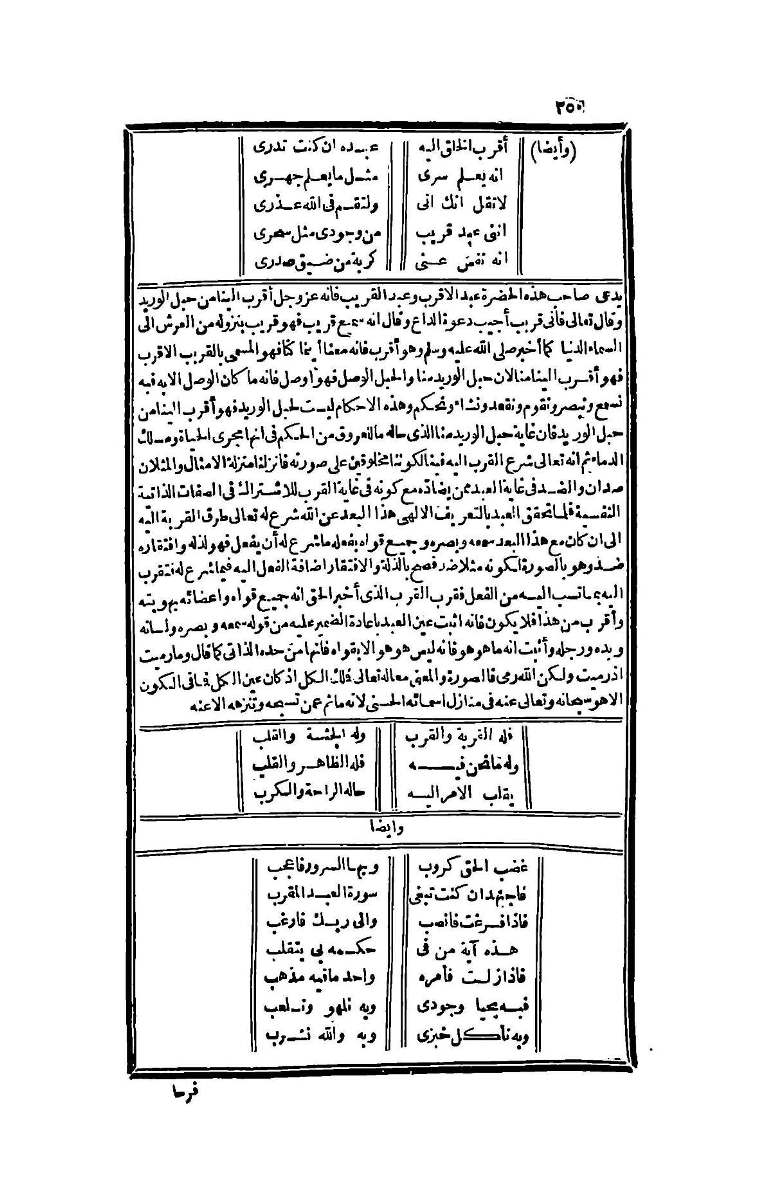 ٢٥٥
(وأيضا) أقرب الخلق اليه عبده ان كنت تدرى
انه يعلم سرى مثل ما يعلم جهرى
لا تقل انك انى ولتقم فى الله عذرى
اننى عبد قريب من وجودى مثل سحرى
انه نفس عنى كربة من ضيق صدرى
يدعى صاحب هذه الحضرة عبد الاقرب وعبد القريب فانه عز وجل أقرب الينا من حبل الوريد
وقال تعالى فانى قريب أجيب دعوة الداع وقال انه سميع قريب فهو قريب بنزوله من العرش الى
السماء الدنيا كما أخبر صلى الله عليه وسلم وهو أقرب فانه معنا أينما كنا فهو المسمى بالقريب الاقرب
فهو أقرب الينا منا لان حبل الوريد منا والحبل الوصل فهو أوصل فانه ما كان الوصل الا به فبه
نسمع ونبصر ونقوم ونقعد ونشاء ونحكم وهذه الاحكام ليست لحبل الوريد فهو أقرب الينا من
حبل الوريد فان غاية حبل الوريد منا الذى حاله ما للعروق من الحكم فى انها مجرى الحياة ومسلك
الدماء ثم انه تعالى شرع القرب اليه فينا لكوننا مخلوقين على صورته فانزلنا منزلة الامثال والمثلان
ضدان والضد فى غاية البعد ممن يضاده مع كونه فى غاية القرب للاشتراك فى الصفات الذاتية
النفسية فلما تحقق العبد بالتعريف الالهى هذا البعد عن الله شرع له تعالى طرق القربة اليه
الى ان كان مع هذا البعد سمعه وبصره وجميع قواه بفعله ما شرع له أن يفعل فهو لذله وافتقاره
ضد وهو بالصورة لكونه مثلا ضد فصح بالذلة والافتقار اضافة الفعل اليه فيما شرع له فتقرب
اليه بما نسب اليه من الفعل فقرب القرب الذى أخبر الحق انه جميع قواه واعضائه بهويته
وأقرب من هذا فلا يكون فانه اثبت عين العبد باعادة الضمير عليه من قوله سمعه وبصره ولسانه
ويده ورجله وأثبت انه ما هو هو فانه ليس هو هو الا بقواه فانها من حده الذاتى كما قال وما رميت
اذ رميت ولكن الله رمى فالصورة والمعنى معا له تعالى فملك الكل اذ كان عين الكل فما فى الكون
الا هو سبحانه وتعالى عنه فى منازل اسمائه الحسنى لانه ما ثم عمن تسبحه وتنزهه الا عنه
فله القربة والقرب وله الجثة والقلب
وله ما نحن فيه فله الظاهر والقلب
يقلب الامر اليه حاله الراحة والكرب
وايضا
غضب الحق كروب وبها السرور فاعجب
فاجتهد ان كنت تبغى سورة العبد المقرب
فاذا فرغت فانصب والى ربك فارغب
هذه آية من فى حكمه بى يتقلب
فاذا زلت فأمره واحد ما فيه مذهب
فبه يحيا وجودى وبه نلهو ونلعب
وبه نأكل خبزى وبه والله نشرب
فرحا